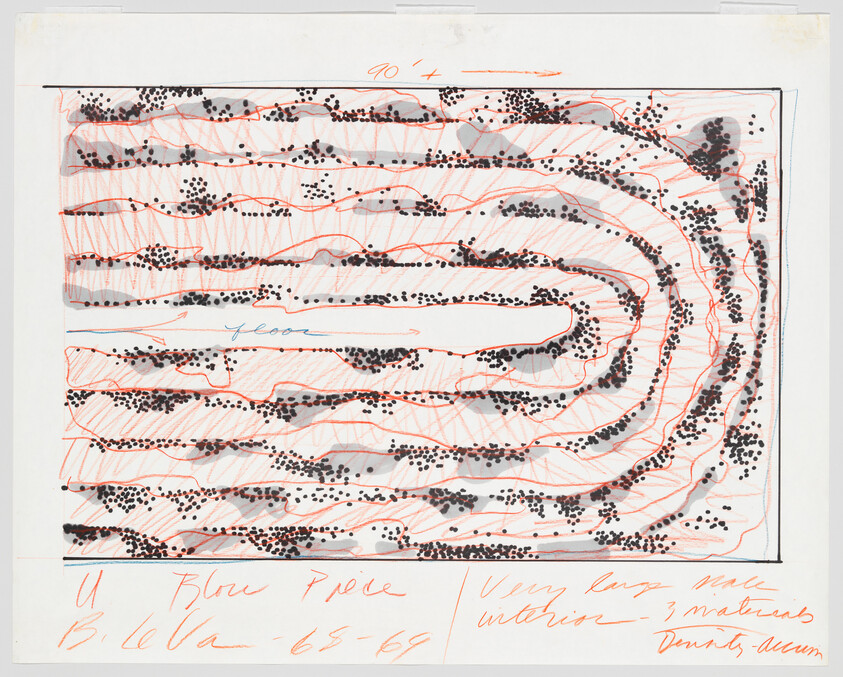 90' +
floor
U Blow Piece
B. Le Va - 68-69
Very large scale
interior - 3 materials
Density - accum